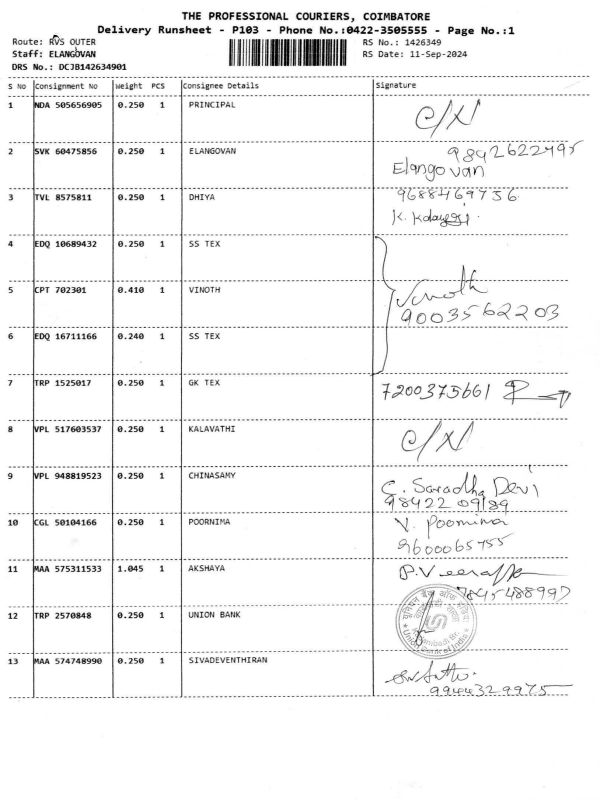 THE PROFESSIONAL COURIERS, COIMBATORE
Delivery Runsheet - P103 - Phone No.:0422-3505555 - Page No.:1
Route: RVS OUTER RS No.: 1426349
Staff: ELANGOVAN RS Date: 11-Sep-2024
DRS No.: DCJB142634901
S No Consignment No Weight PCS Consignee Details Signature
1 NDA 505656905 0.250 1 PRINCIPAL C/N
2 SVK 60475856 0.250 1 ELANGOVAN 9842622495
Elangovan
3 TVL 8575811 0.250 1 DHIYA 9688469756
K.
4 EDQ 10689432 0.250 1 SS TEX
5 CPT 702301 0.410 1 VINOTH Vinoth
9003562203
6 EDQ 16711166 0.240 1 SS TEX
7 TRP 1525017 0.250 1 GK TEX 7200375661
8 VPL 517603537 0.250 1 KALAVATHI C/N
9 VPL 948819523 0.250 1 CHINASAMY C. Saradha Devi
98422 09189
10 CGL 50104166 0.250 1 POORNIMA V. Poornima
9600065755
11 MAA 575311533 1.045 1 AKSHAYA P.
7845488997
12 TRP 2570848 0.250 1 UNION BANK
यूनियन बैंक ऑफ इंडिया
Union Bank of India
13 MAA 574748990 0.250 1 SIVADEVENTHIRAN
9944329975